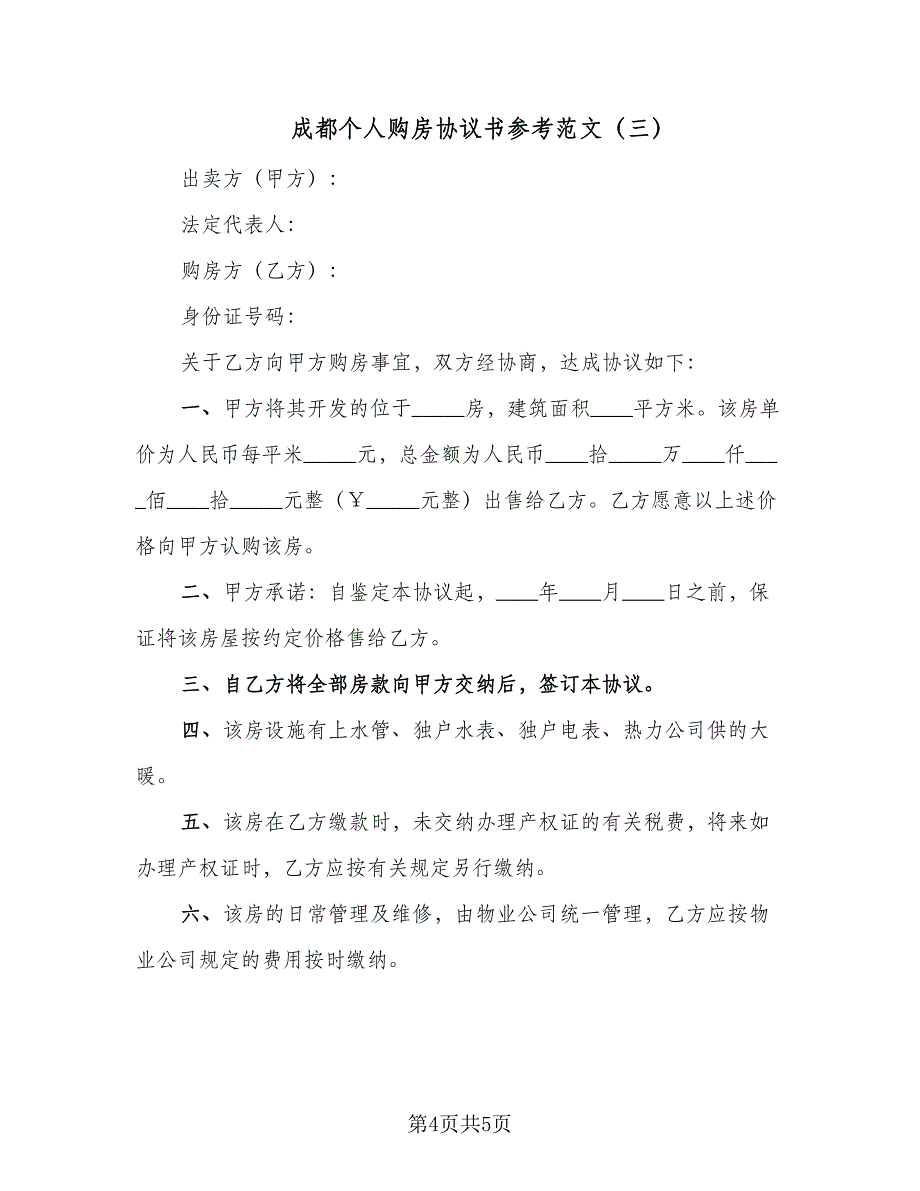 成都个人购房协议书参考范文（三）
出卖方（甲方）：
法定代表人：
购房方（乙方）：
身份证号码：
关于乙方向甲方购房事宜，双方经协商，达成协议如下：
一、甲方将其开发的位于_____房，建筑面积____平方米。该房单
价为人民币每平米_____元，总金额为人民币____拾_____万____仟___
_佰____拾_____元整（￥_____元整）出售给乙方。乙方愿意以上述价
格向甲方认购该房。
二、甲方承诺：自鉴定本协议起，____年____月____日之前，保
证将该房屋按约定价格售给乙方。
三、自乙方将全部房款向甲方交纳后，签订本协议。
四、该房设施有上水管、独户水表、独户电表、热力公司供的大
暖。
五、该房在乙方缴款时，未交纳办理产权证的有关税费，将来如
办理产权证时，乙方应按有关规定另行缴纳。
六、该房的日常管理及维修，由物业公司统一管理，乙方应按物
业公司规定的费用按时缴纳。
第4页共5页